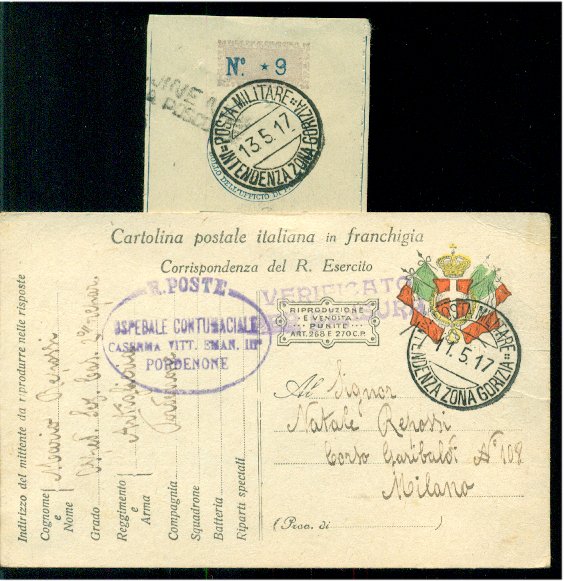 Nº. * 9
POSTA MILITARE
13.5.17
INTENDENZA ZONA GORIZIA
DELL'UFFICIO DI
Cartolina postale italiana in franchigia
Corrispondenza del R. Esercito
R. POSTE
OSPEDALE CONTUMACIALE
CASERMA VITT. EMAN. III°
PORDENONE
VERIFICATO
RIPRODUZIONE
E VENDITA
PUNITE
ART. 268 E 270 C.P.
POSTA MILITARE
11.5.17
INTENDENZA ZONA GORIZIA
Al Signor
Natale Repossi
Corso Garibaldi Nº 108
Milano
(Prov. di )
Indirizzo del mittente da riprodurre nelle risposte
Cognome e Nome Mario Repossi
Grado
Reggimento e Arma Artiglieria
Compagnia
Squadrone
Batteria
Riparti speciali